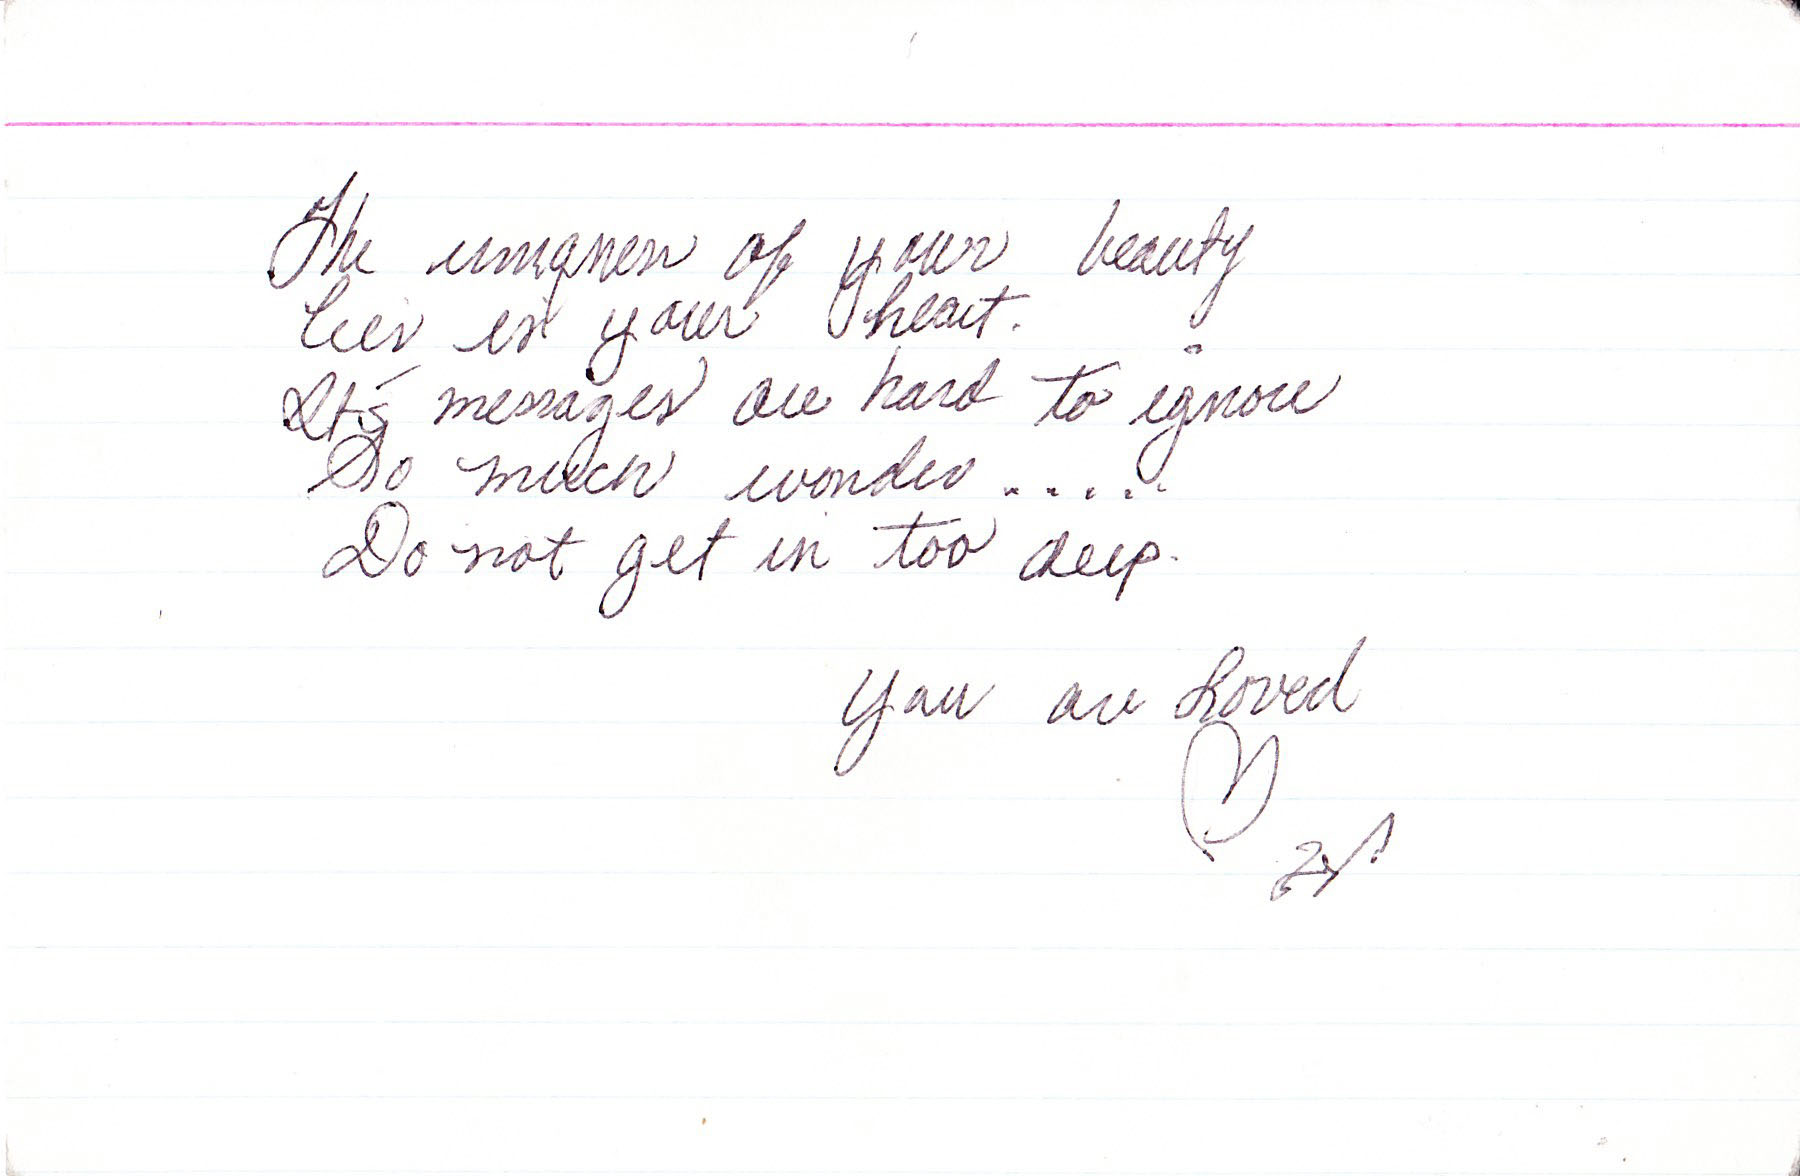 The uniqness of your beauty
lies in your heart.
It's messages are hard to ignore
So much wonder .....
Do not get in too deep.
You are Loved